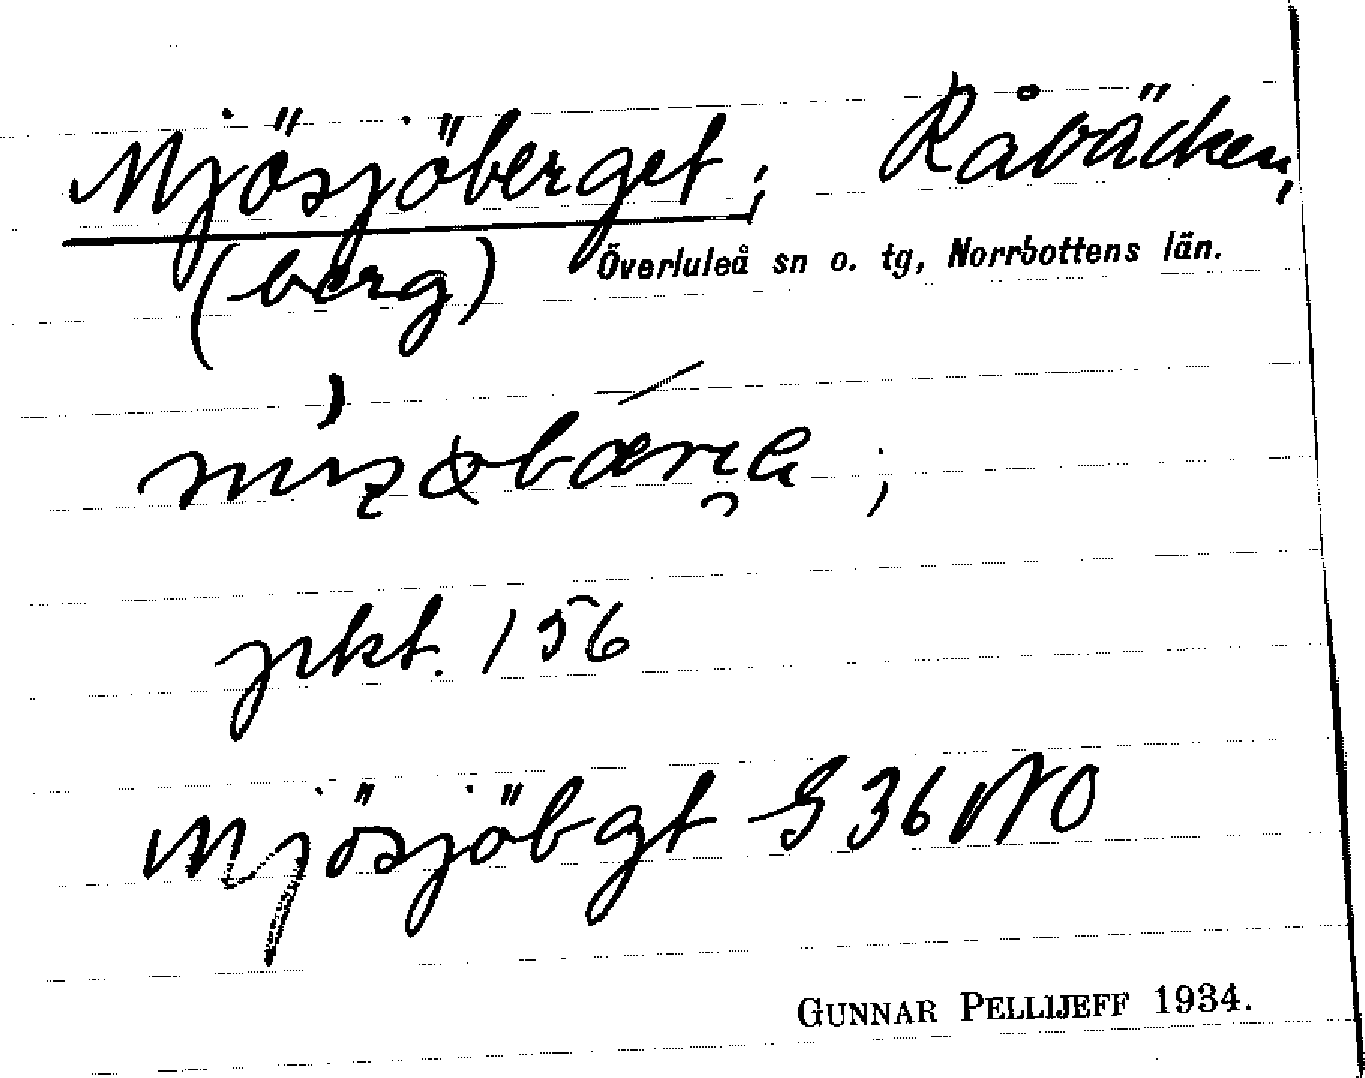 Mjösjöberget; Råbäcken,
(berg) Överluleå sn o. tg, Norrbottens län.
pkt. 156
Mjösjöbgt S 36 NO
GUNNAR PELLIJEFF 1934.